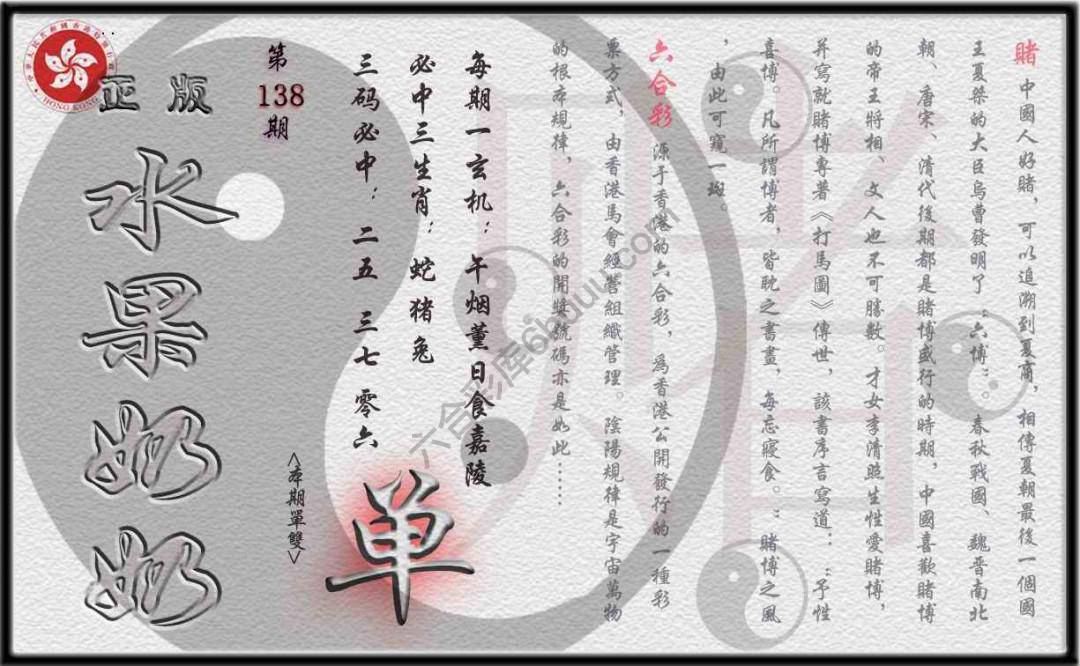 賭 中國人好賭，可以追溯到夏商，相傳夏朝最後一個國
王夏桀的大臣烏曹發明了：六博：。春秋戰國、魏晉南北
朝、唐宋、清代後期都是賭博盛行的時期，中國喜歡賭博
的帝王將相、文人也不可勝數。才女李清照生性愛賭博，
并寫就賭博專著《打馬圖》傳世，該書序言寫道：：予性
喜博。凡所謂博者，皆耽之書畫，每忘寢食。：賭博之風
，由此可窺一斑。
六合彩 源于香港的六合彩，為香港公開發行的一種彩
票方式，由香港馬會經營組織管理。陰陽規律是宇宙萬物
的根本規律，六合彩的開獎號碼亦是如此……
每期一玄机：午烟薰日食嘉陵
必中三生肖：蛇猪兔
三码必中：二五 三七 零六
单
<本期單雙>
第
138
期
正版
水果奶奶
HONG KONG
六合彩库66uuu.com